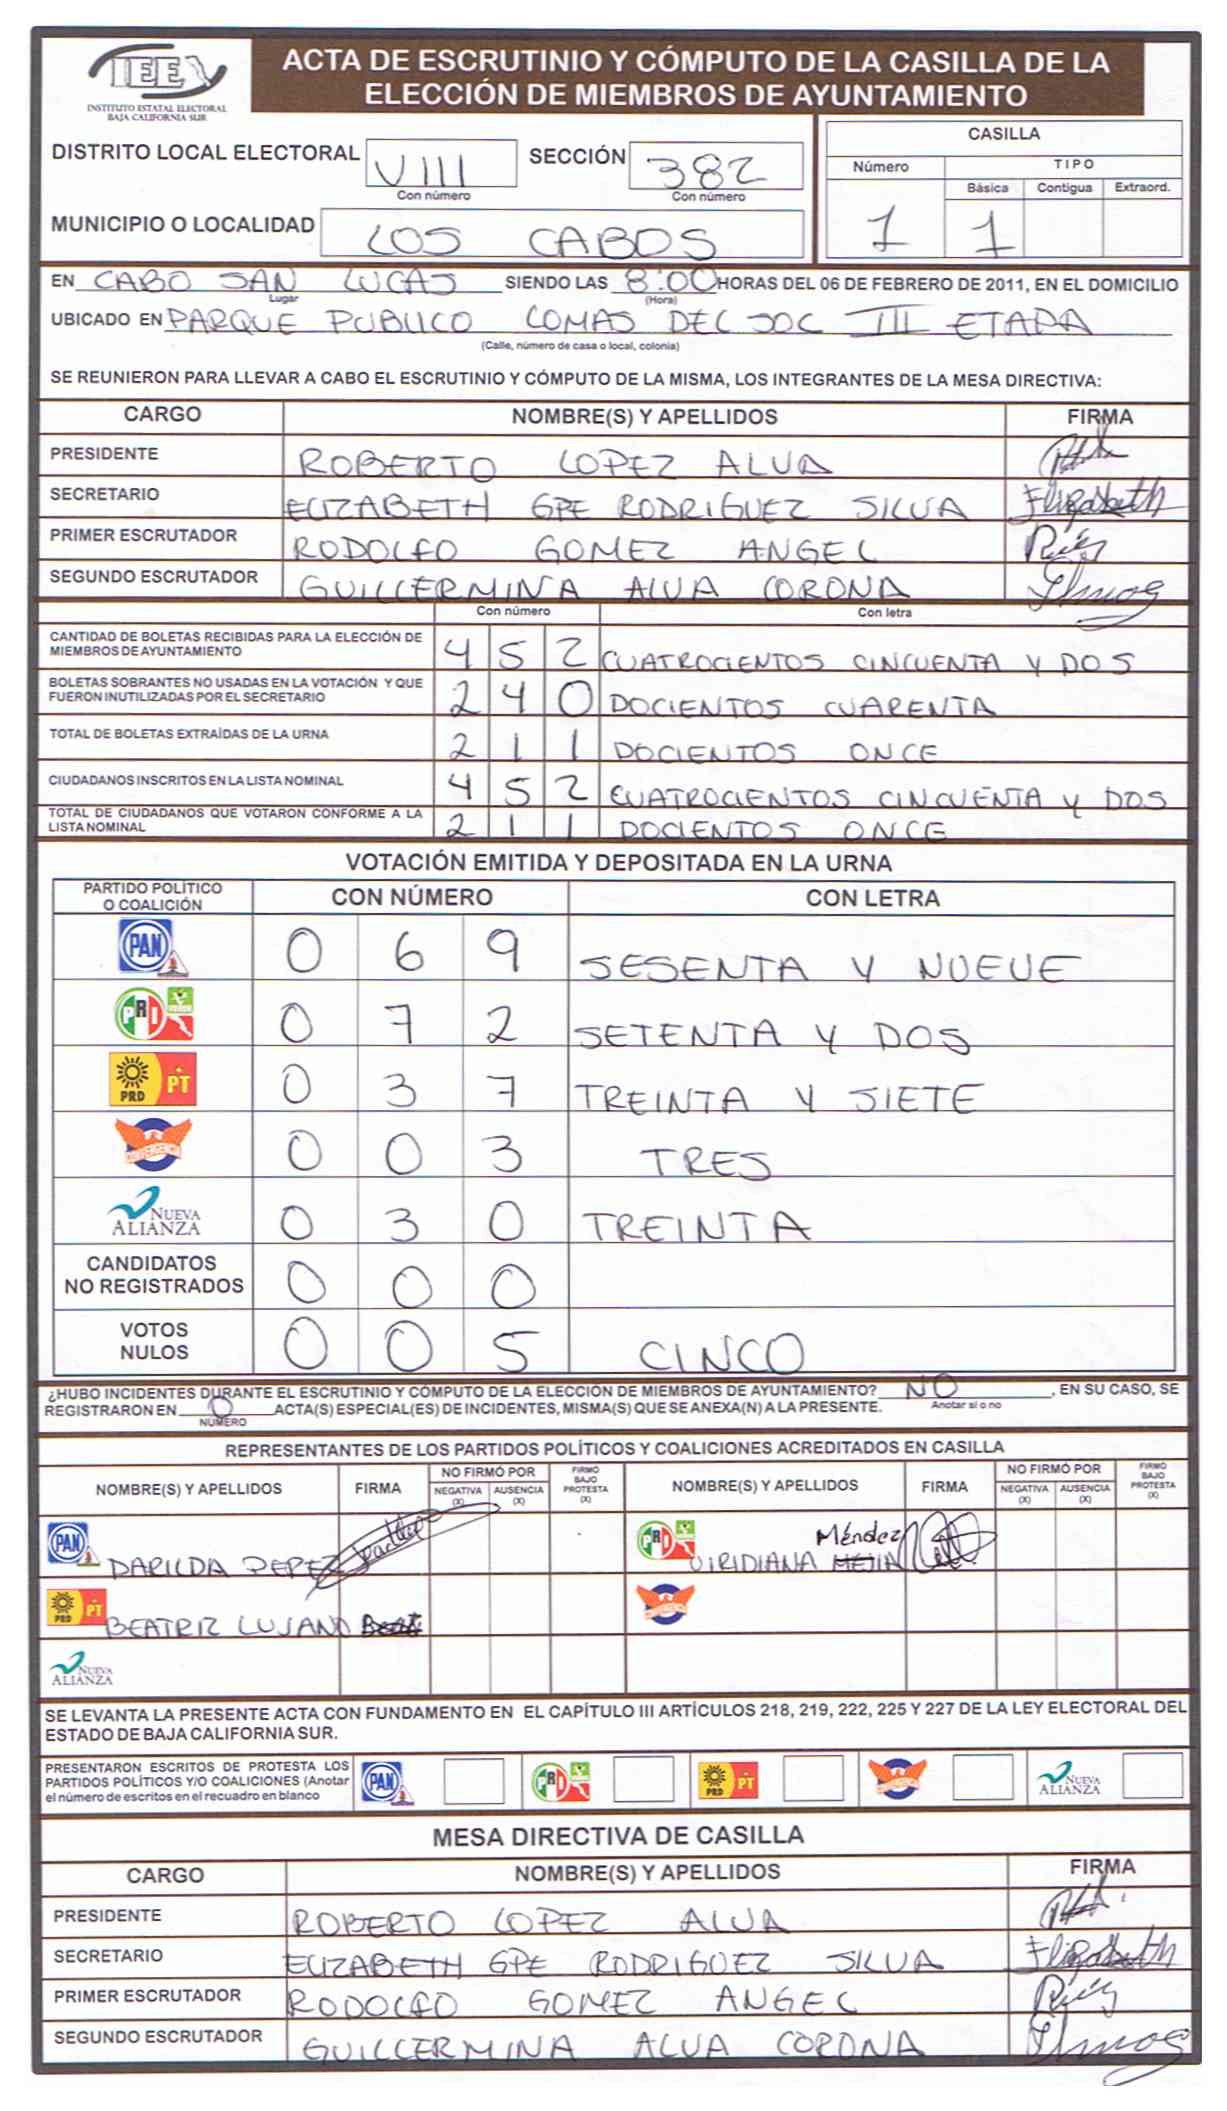 IEEX
INSTITUTO ESTATAL ELECTORAL
BAJA CALIFORNIA SUR
ACTA DE ESCRUTINIO Y CÓMPUTO DE LA CASILLA DE LA
ELECCIÓN DE MIEMBROS DE AYUNTAMIENTO
DISTRITO LOCAL ELECTORAL VIII SECCIÓN 382
Con número Con número
MUNICIPIO O LOCALIDAD LOS CABOS
CASILLA
Número TIPO
Básica Contigua Extraord.
1 1
EN CABO SAN LUCAS SIENDO LAS 8:00 HORAS DEL 06 DE FEBRERO DE 2011, EN EL DOMICILIO
Lugar (Hora)
UBICADO EN PARQUE PUBLICO LOMAS DEL SOL III ETAPA
(Calle, número de casa o local, colonia)
SE REUNIERON PARA LLEVAR A CABO EL ESCRUTINIO Y CÓMPUTO DE LA MISMA, LOS INTEGRANTES DE LA MESA DIRECTIVA:
CARGO NOMBRE(S) Y APELLIDOS FIRMA
PRESIDENTE ROBERTO LOPEZ ALVA
SECRETARIO ELIZABETH GPE RODRIGUEZ SILVA Elizabeth
PRIMER ESCRUTADOR RODOLFO GOMEZ ANGEL
SEGUNDO ESCRUTADOR GUILLERMINA ALVA CORONA
Con número Con letra
CANTIDAD DE BOLETAS RECIBIDAS PARA LA ELECCIÓN DE
MIEMBROS DE AYUNTAMIENTO 4 5 2 CUATROCIENTOS CINCUENTA Y DOS
BOLETAS SOBRANTES NO USADAS EN LA VOTACIÓN Y QUE
FUERON INUTILIZADAS POR EL SECRETARIO 2 4 0 DOCIENTOS CUARENTA
TOTAL DE BOLETAS EXTRAÍDAS DE LA URNA 2 1 1 DOCIENTOS ONCE
CIUDADANOS INSCRITOS EN LA LISTA NOMINAL 4 5 2 CUATROCIENTOS CINCUENTA Y DOS
TOTAL DE CIUDADANOS QUE VOTARON CONFORME A LA
LISTA NOMINAL 2 1 1 DOCIENTOS ONCE
VOTACIÓN EMITIDA Y DEPOSITADA EN LA URNA
PARTIDO POLÍTICO
O COALICIÓN CON NÚMERO CON LETRA
PAN 0 6 9 SESENTA Y NUEVE
PRI 0 7 2 SETENTA Y DOS
PRD PT 0 3 7 TREINTA Y SIETE
CONVERGENCIA 0 0 3 TRES
NUEVA ALIANZA 0 3 0 TREINTA
CANDIDATOS
NO REGISTRADOS 0 0 0
VOTOS
NULOS 0 0 5 CINCO
¿HUBO INCIDENTES DURANTE EL ESCRUTINIO Y CÓMPUTO DE LA ELECCIÓN DE MIEMBROS DE AYUNTAMIENTO? NO , EN SU CASO, SE
Anotar sí o no
REGISTRARON EN 0 ACTA(S) ESPECIAL(ES) DE INCIDENTES, MISMA(S) QUE SE ANEXA(N) A LA PRESENTE.
NÚMERO
REPRESENTANTES DE LOS PARTIDOS POLÍTICOS Y COALICIONES ACREDITADOS EN CASILLA
NOMBRE(S) Y APELLIDOS FIRMA NO FIRMÓ POR NEGATIVA (X) AUSENCIA (X) FIRMÓ BAJO PROTESTA (X) NOMBRE(S) Y APELLIDOS FIRMA NO FIRMÓ POR NEGATIVA (X) AUSENCIA (X) FIRMÓ BAJO PROTESTA (X)
PAN DARILDA PEREZ PRI VIRIDIANA MEJIA Méndez
PRD PT BEATRIZ LUJANO CONVERGENCIA
NUEVA ALIANZA
SE LEVANTA LA PRESENTE ACTA CON FUNDAMENTO EN EL CAPÍTULO III ARTÍCULOS 218, 219, 222, 225 Y 227 DE LA LEY ELECTORAL DEL
ESTADO DE BAJA CALIFORNIA SUR.
PRESENTARON ESCRITOS DE PROTESTA LOS
PARTIDOS POLÍTICOS Y/O COALICIONES (Anotar
el número de escritos en el recuadro en blanco
PAN PRI PRD PT CONVERGENCIA NUEVA ALIANZA
MESA DIRECTIVA DE CASILLA
CARGO NOMBRE(S) Y APELLIDOS FIRMA
PRESIDENTE ROBERTO LOPEZ ALVA
SECRETARIO ELIZABETH GPE RODRIGUEZ SILVA Elizabeth
PRIMER ESCRUTADOR RODOLFO GOMEZ ANGEL
SEGUNDO ESCRUTADOR GUILLERMINA ALVA CORONA